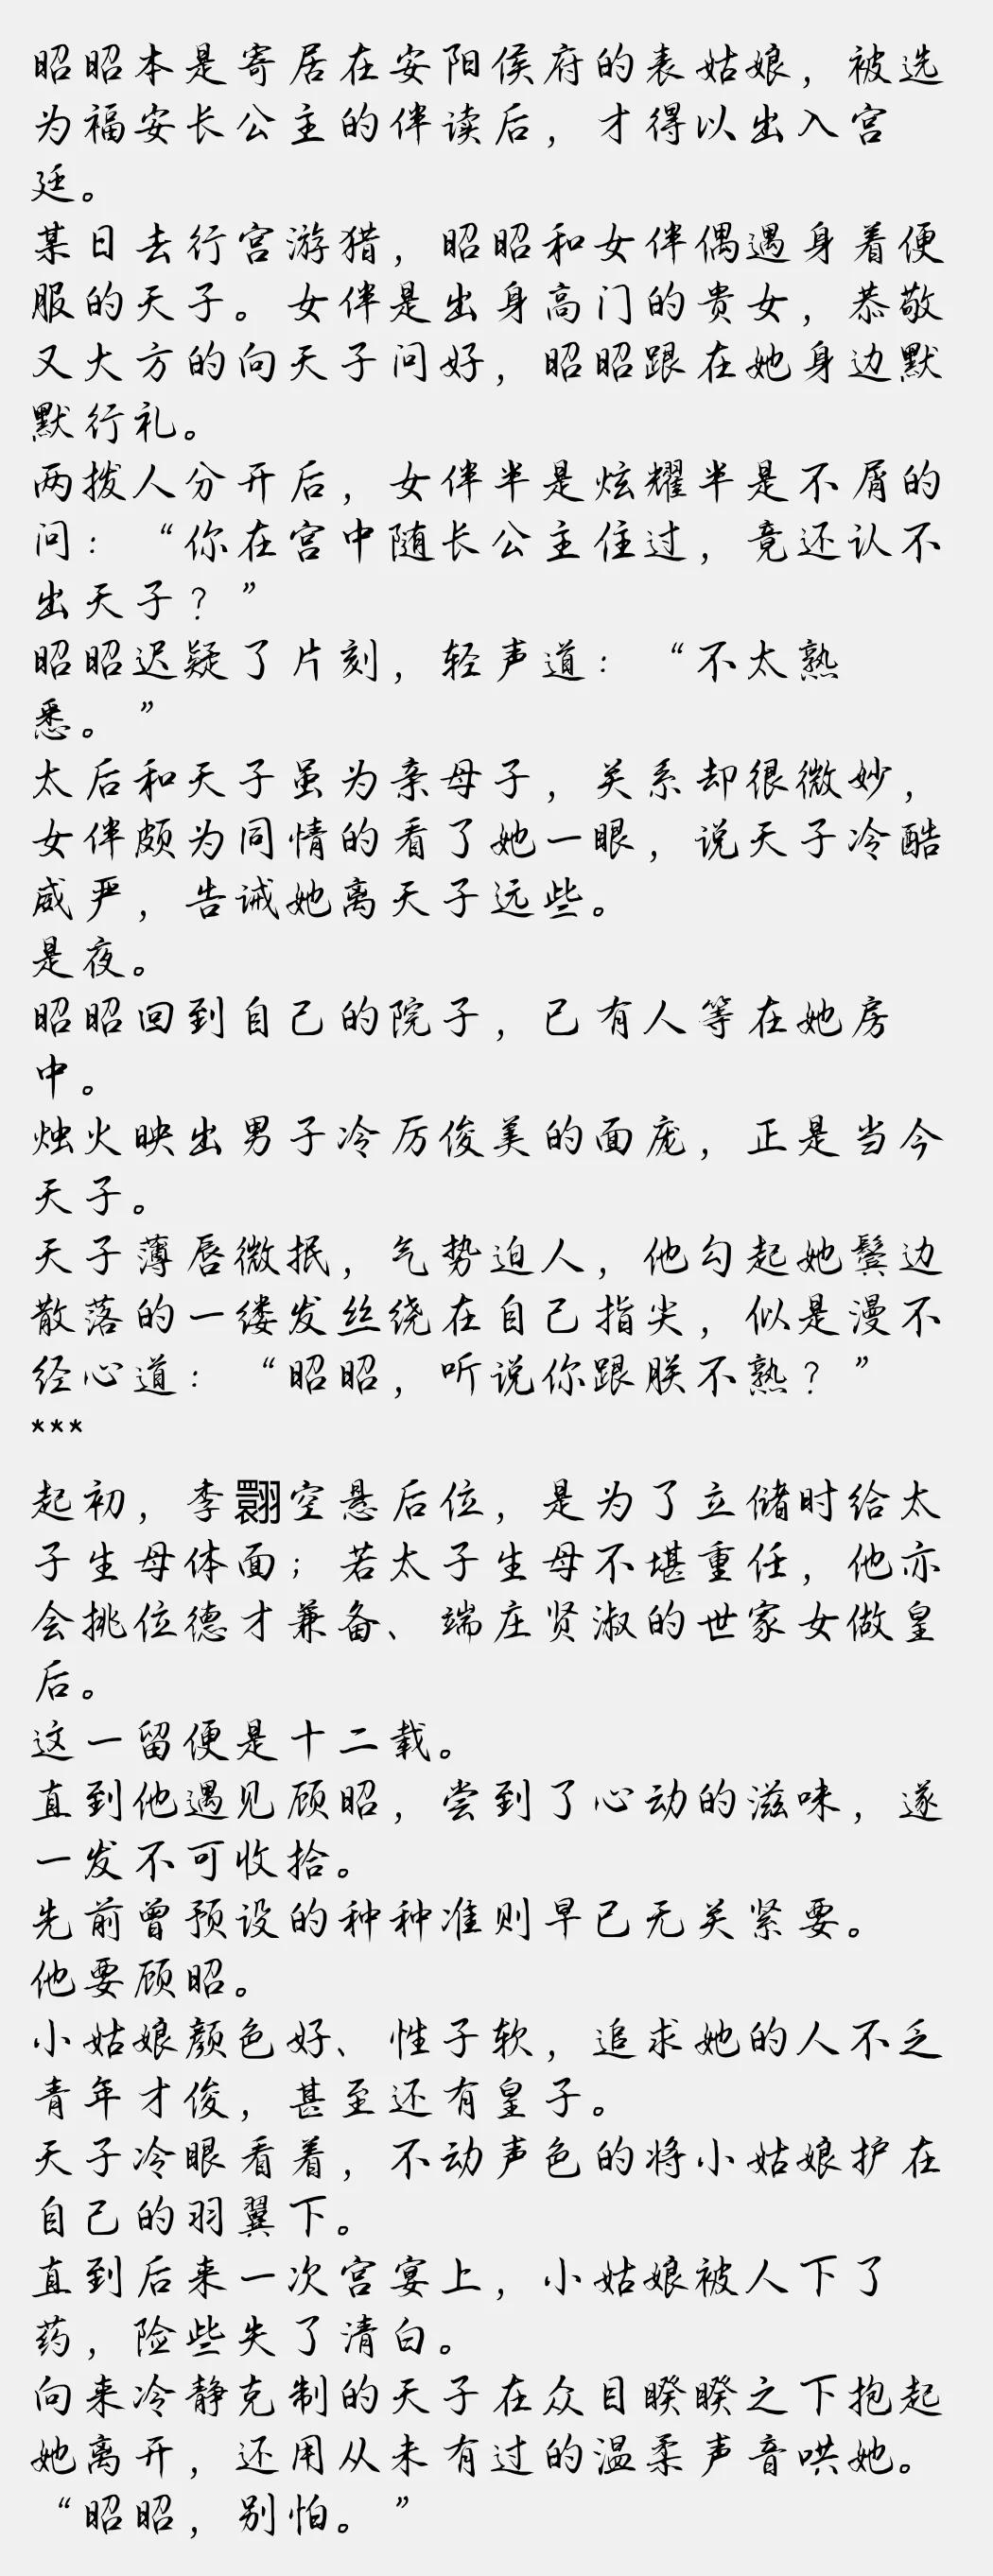 昭昭本是寄居在安阳侯府的表姑娘，被选
为福安长公主的伴读后，才得以出入宫
廷。
某日去行宫游猎，昭昭和女伴偶遇身着便
服的天子。女伴是出身高门的贵女，恭敬
又大方的向天子问好，昭昭跟在她身边默
默行礼。
两拨人分开后，女伴半是炫耀半是不屑的
问：“你在宫中随长公主住过，竟还认不
出天子？”
昭昭迟疑了片刻，轻声道：“不太熟
悉。”
太后和天子虽为亲母子，关系却很微妙，
女伴颇为同情的看了她一眼，说天子冷酷
威严，告诫她离天子远些。
是夜。
昭昭回到自己的院子，已有人等在她房
中。
烛火映出男子冷厉俊美的面庞，正是当今
天子。
天子薄唇微抿，气势迫人，他勾起她鬓边
散落的一缕发丝绕在自己指尖，似是漫不
经心道：“昭昭，听说你跟朕不熟？”
***
起初，李翾空悬后位，是为了立储时给太
子生母体面；若太子生母不堪重任，他亦
会挑位德才兼备、端庄贤淑的世家女做皇
后。
这一留便是十二载。
直到他遇见顾昭，尝到了心动的滋味，遂
一发不可收拾。
先前曾预设的种种准则早已无关紧要。
他要顾昭。
小姑娘颜色好、性子软，追求她的人不乏
青年才俊，甚至还有皇子。
天子冷眼看着，不动声色的将小姑娘护在
自己的羽翼下。
直到后来一次宫宴上，小姑娘被人下了
药，险些失了清白。
向来冷静克制的天子在众目睽睽之下抱起
她离开，还用从未有过的温柔声音哄她。
“昭昭，别怕。”